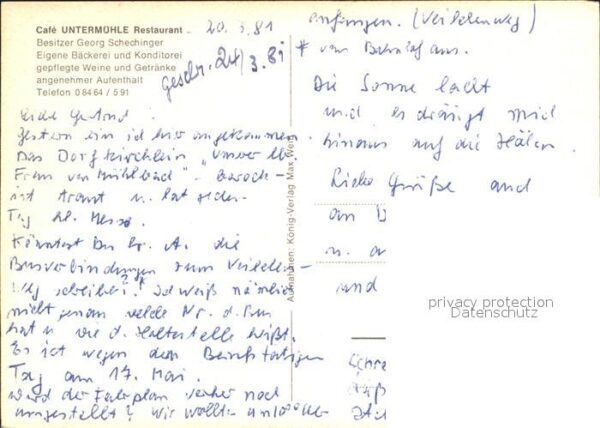 Café UNTERMÜHLE Restaurant
Besitzer Georg Schechinger
Eigene Bäckerei und Konditorei
gepflegte Weine und Getränke
angenehmer Aufenthalt
Telefon 0 84 64 / 5 91
20. 3. 81
geschr. 24/3.81
Liebe
Gestern bin ich hier angekommen
Das Dorfkirchlein "Unserer lb.
Frau von Mühlbach" - barock -
ist u. hat jeden
Tag hl. Messe.
Könntest Du die
Busverbindungen zum Veilchen-
weg schreiben? Ich weiß nämlich
nicht genau welche Nr. d. Bus
hat u. wie d. Haltestelle heißt.
Es ist wegen dem
Tag am 17. Mai.
Wird der Fahrplan vorher noch
umgestellt? Wir wollten um 10⁰⁰ Uhr
Aufnahmen: König-Verlag Max
anfangen. (Veilchenweg)
* vom Bahnhof aus.
Die Sonne lacht
und es drängt mich
hinaus auf die Höhen.
Liebe Grüße und
an D
u. a
und
privacy protection
Datenschutz